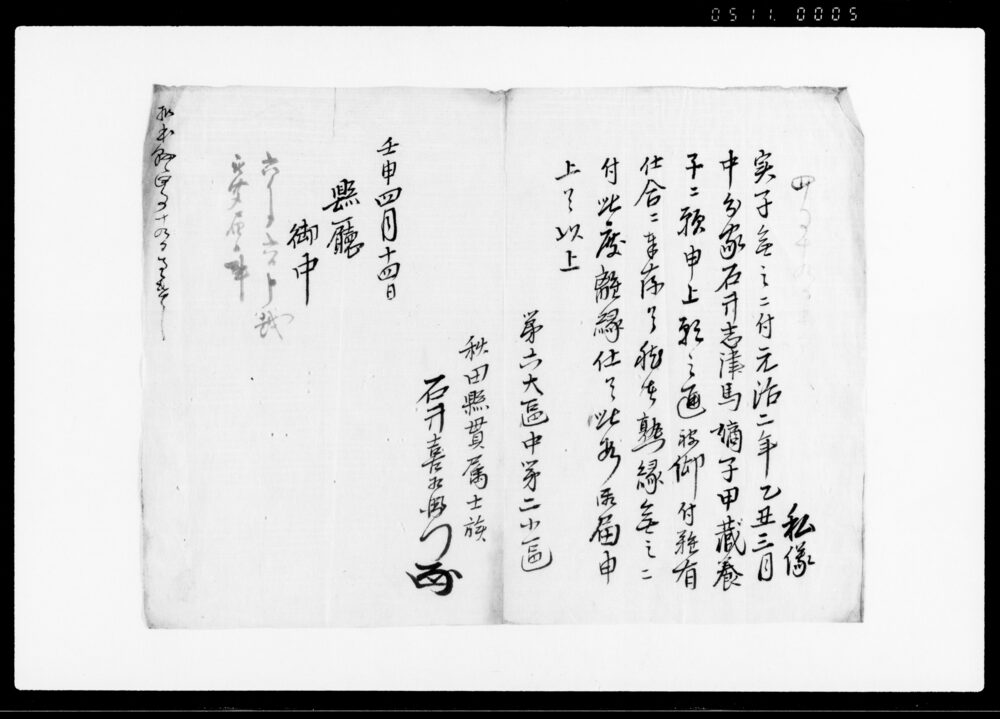 0511 0005
私儀
実子無之ニ付元治二年乙丑三月
中分家石井志津馬嫡子甲蔵養
子ニ願申上願之通被仰付難有
仕合ニ奉存候然処熟縁無之ニ
付此度離縁仕候此段御届申
上候以上
第六大區中第二小區
秋田縣貫属士族
石井喜右衛門
壬申四月十四日
縣廳
御中